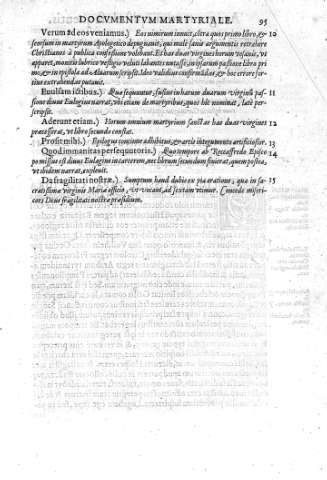 DOCVMENTVM MARTYRIALE. 95
Verum ad eos veniamus.) Eos nimirum innuit, citra quos primo libro, & 10
seorsum in martyrum Apologetico depugnauit, qui male sano argumento retrahere
Christianos à publica confessione volebant. Et has duas virgines horum vesanie, vt
apparet, monitu lubrico vestigio veluti labantes nutasse, in ipsarum passione libro pri
mo, & in epistola ad eas duarum scripsit. Ideo validius confirmādas, & hoc errore for-
tius extrahendas putauit.
Euulsam ictibus.) Quæ sequuntur, fusius in harum duarum virginū pas- 11
sione diuus Eulogius narrat, vbi etiam de martyribus, quos hic nominat, late per-
scripsit.
Aderunt etiam.) Horum omnium martyrium sanctas has duas virgines 12
præcesserat, vt libro secundo constat.
Prosit tibi.) Epilogus continet adhibitus, & artis integumentis artificiosior. 13
Quod immanitas persequutoris.) Quo tempore ab Reccafredo Episco 14
po missus est diuus Eulogius in carcerem, nec librum secundum finierat, quem postea,
vt ibidem narrat, expleuit.
Da fragilitati nostræ.) Sumptum haud dubiè ex pia oratione, qua in sa- 15
cratissimæ virginis Mariæ officio, vt vocant, ad sextam vtimur. Concede miseri-
cors Deus fragilitati nostræ præsidium.